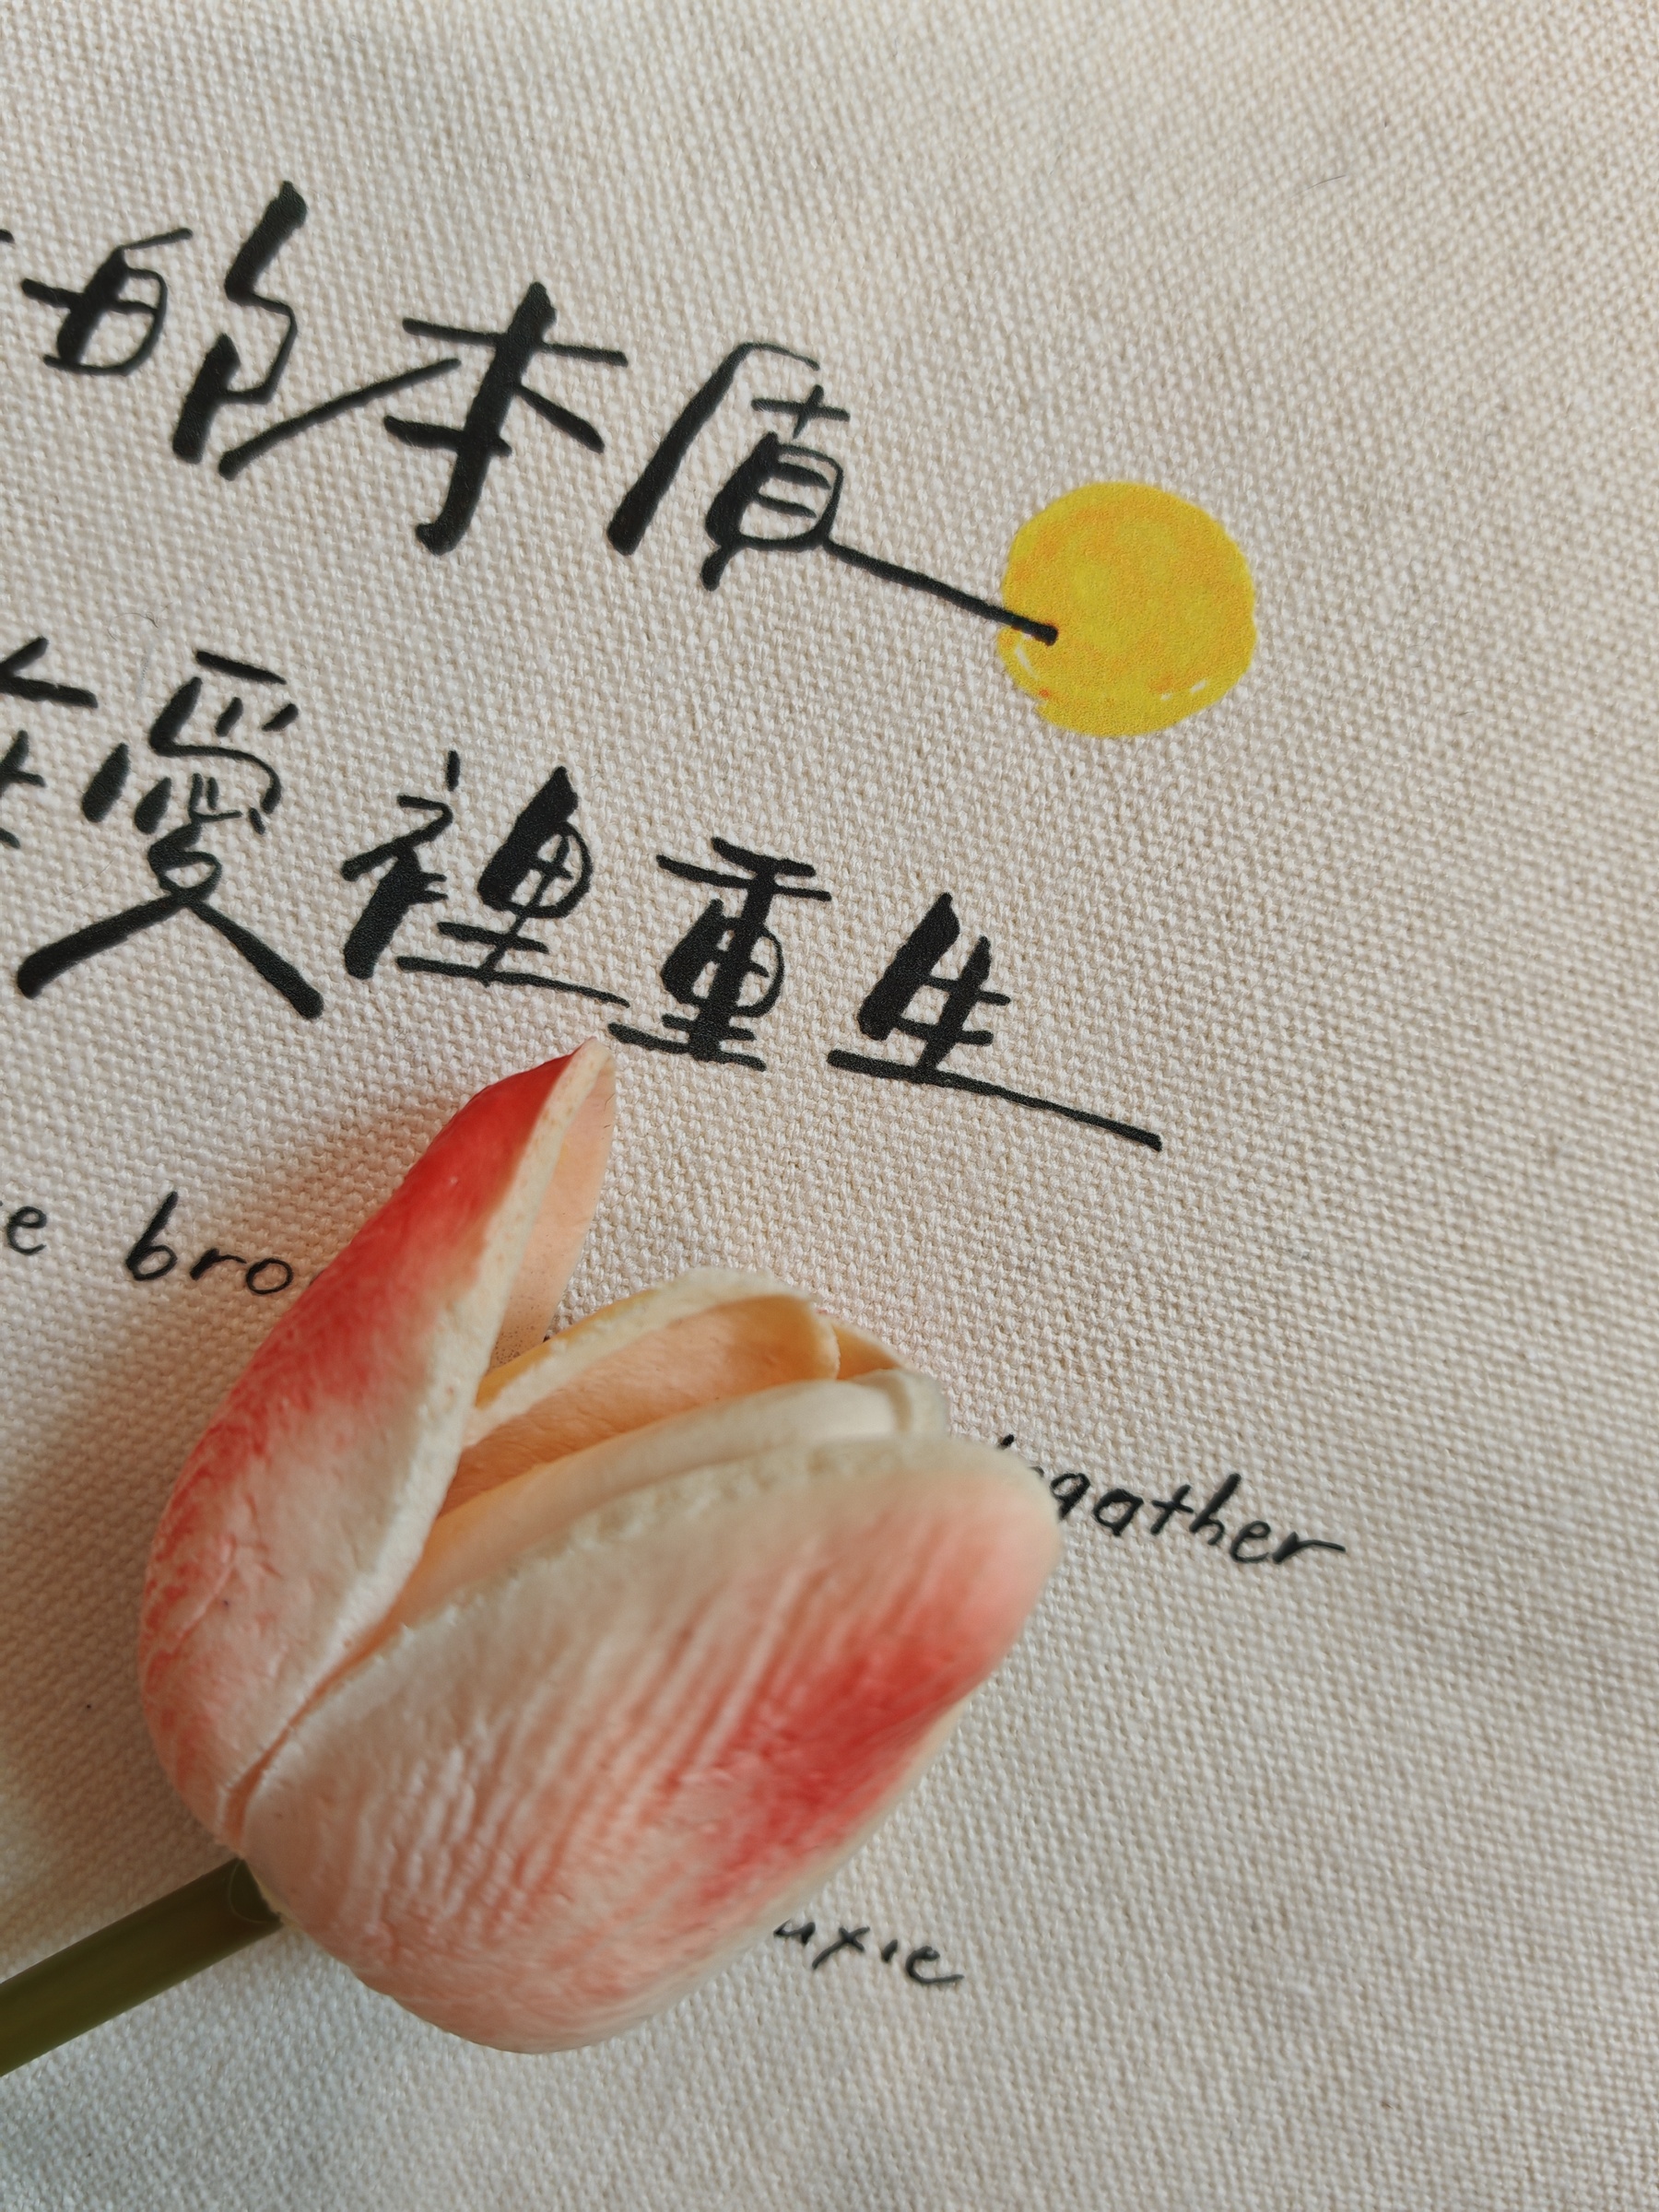 的本质
在愛裡重生
e bro
gather
uxie